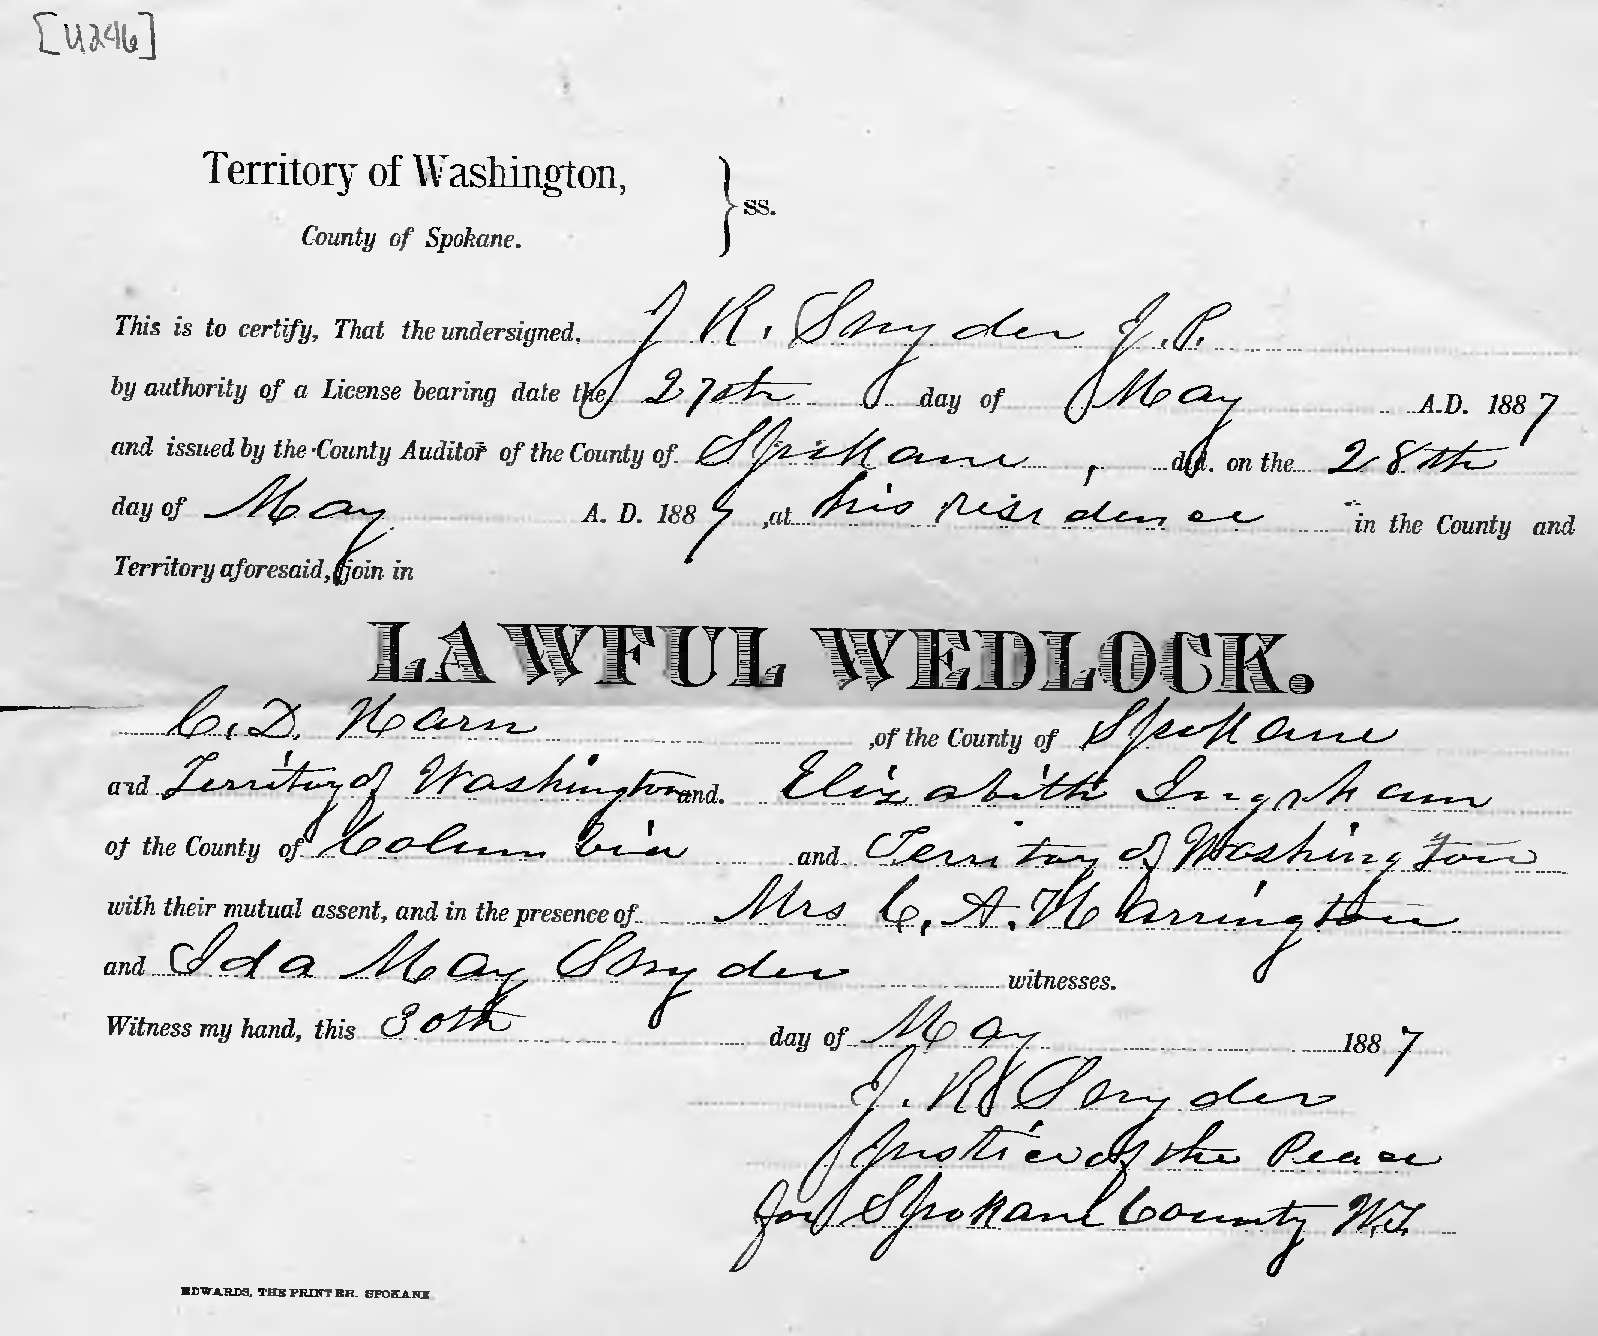 [U246]
Territory of Washington,
County of Spokane. } ss.
This is to certify, That the undersigned, J R. Snyder J.P.
by authority of a License bearing date the 27th day of May A.D. 1887
and issued by the County Auditor of the County of Spokane, did. on the 28th
day of May A. D. 1887, at his residence in the County and
Territory aforesaid, join in
LAWFUL WEDLOCK.
C. D. Harn, of the County of Spokane
and Territory of Washington and. Elizabeth Ingraham
of the County of Columbia and Territory of Washington
with their mutual assent, and in the presence of Mrs C. A. Harrington
and Ida May Snyder witnesses.
Witness my hand, this 30th day of May 1887
J. R. Snyder
Justice of the Peace
for Spokane County W.T.
EDWARDS, THE PRINTER. SPOKANE